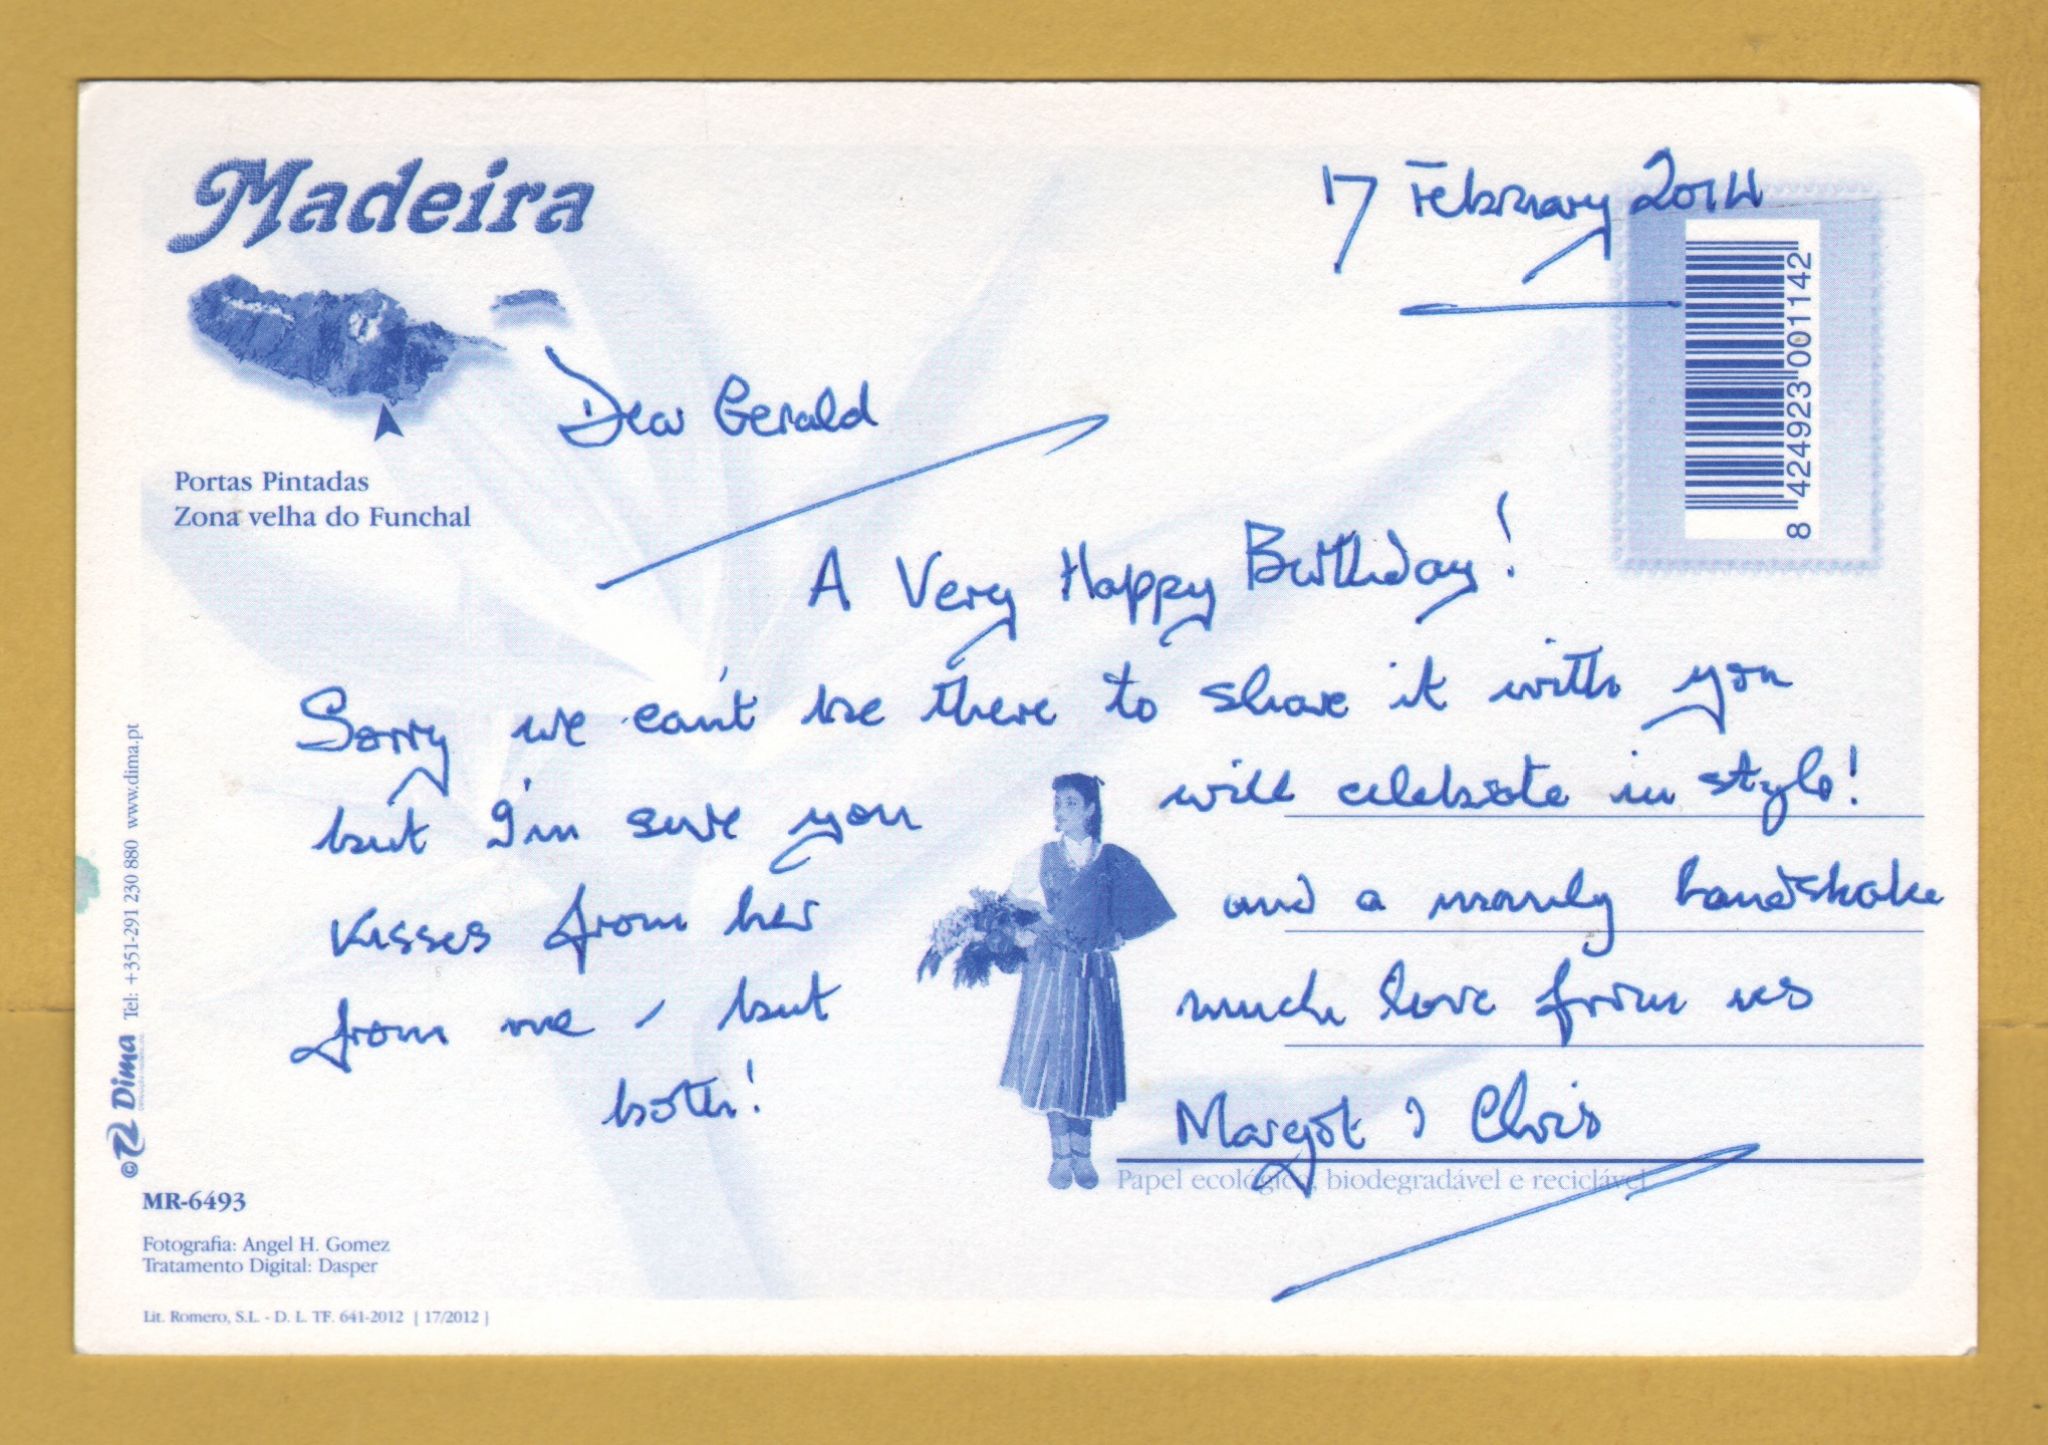 Madeira
17 February 2014
Portas Pintadas
Zona velha do Funchal
8 424923 001142
Dear Gerald
A Very Happy Birthday!
Sorry we can't be there to share it with you
but I'm sure you will celebrate in style!
Kisses from her and a manly handshake
from me - but much love from us
both!
Margot & Chris
Papel ecológico, biodegradável e reciclável
© Dima Tel: +351-291 230 880 www.dima.pt
MR-6493
Fotografia: Angel H. Gomez
Tratamento Digital: Dasper
Lit. Romero, S.L. - D. L. TF. 641-2012 [ 17/2012 ]